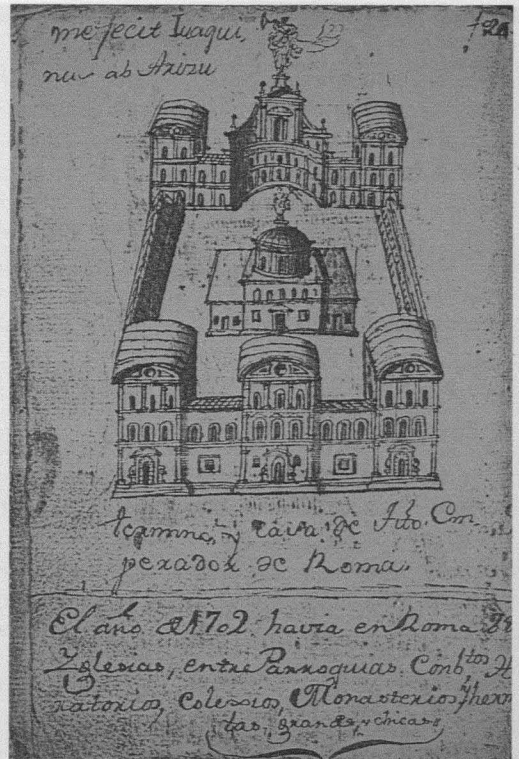 me fecit Ivaqui,
nus ab Arizu
casa de Tito Em
perador de Roma.
El año de 1702. havia en Roma
Yglesias, entre Parroquias. Conbtos
ratorios, Colexios, Monasterios, y herm
tas, grandes, y chicas